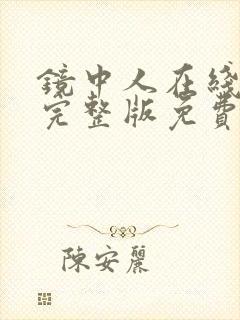 鏡中人在綫
完整版免費
陳安麗